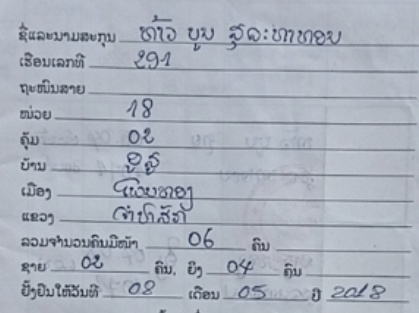 ຊື່ແລະນາມສະກຸນ ທ້າວ ບຸນ ສຸລະທາທອບ
ເຮືອນເລກທີ 291
ຖະໜົນສາຍ
ໜ່ວຍ 18
ຄຸ້ມ 02
ບ້ານ
ເມືອງ ໂພນທອງ
ແຂວງ ຈຳປາສັກ
ລວມຈຳນວນຄົນມີໜ້າ 06 ຄົນ
ຊາຍ 02 ຄົນ, ຍິງ 04 ຄົນ
ຢັ້ງຢືນໃຫ້ວັນທີ 08 ເດືອນ 05 ປີ 2018